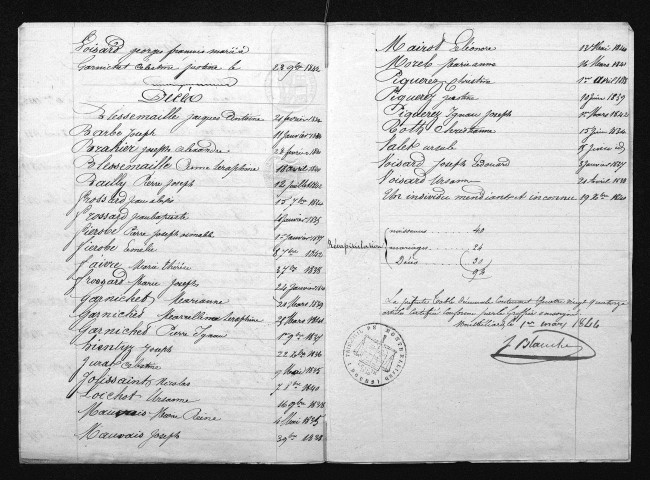 Voisard georges francois maria à
Garnichet celestine justine le 23 9bre 1842
Décès
Blessemaille Jacques Dentoine 21 fevrier 1840
Barbe Joseph 11 janvier 1840
Brahier joseph alexandre 28 fevrier 1840
Blessemaille Seraphine 18 avril 1840
Bailly Pierre Joseph 12 juillet 1842
Brossard 1840
Crossard jean baptiste 4 janvier 1835
Pierre Joseph 15 janvier 1837
Emelie 8 7bre 1842
Faivre Marie Thérèse 3 7bre 1838
Froégard Marie Joseph 24 janvier 1840
Garnichet Marianne 20 Mars 1839
Garniches Marcelline Seraphine 28 Mars 1840
Garniches Pierre Ignace 1er 9bre 1837
Hientzy Joseph 22 1836
Jurat Celestine 9 1835
Joissaint Nicolas 7 1840
Loichot Ursanne 16 9bre 1838
Mauvais Marie Reine 4 Mai 1835
Mauvais Joseph 3 9bre 1838
Mairot Eléonore 12 Mai 1840
Morel Marie anne 16 Mars 1840
Piquerez Christine 1er avril 1838
Piquerez justine 30 juin 1839
Piquerez Ignace Joseph 1er Mars 1842
Roth Christianne 15 juin 1834
Valet ursule 8 janvier
Voisard Joseph Edouard 3 janvier 1837
Voisard Ursanne 20 avril 1838
Un individu mendiant et inconnu 19 1840
Récapitulation
naissances 40
mariages 24
Décès 30
94
La présente table Décennale Contenant quatre vingt quatorze
actes Certifiée Conforme par le greffier soussigné
Montbéliard, le 1er mars 1844
J. Blanche